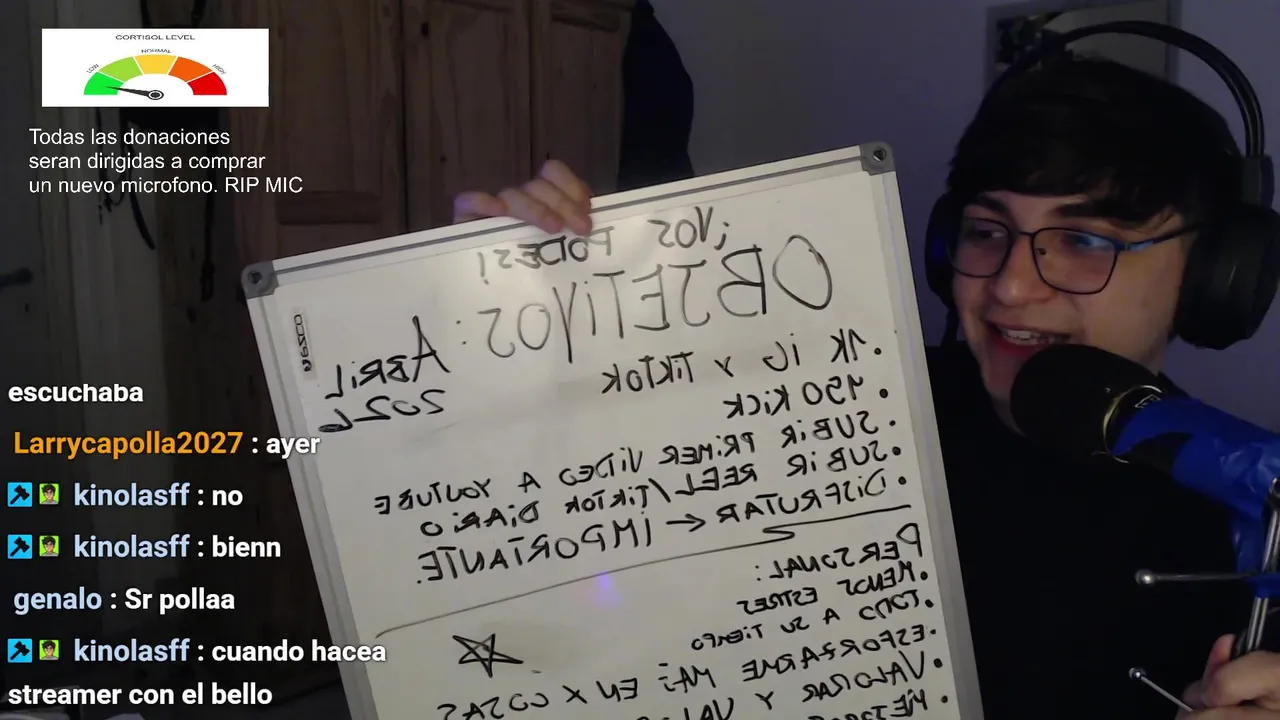 CORTISOL LEVEL
LOW
NORMAL
HIGH
Todas las donaciones
seran dirigidas a comprar
un nuevo microfono. RIP MIC
¡VOS PODES!
OBJETIVOS: ABRIL
2026
• 1K IG Y TIKTOK
• 150 KICK
• SUBIR PRIMER VIDEO A YOUTUBE
• SUBIR REEL/TIKTOK DIARIO
• DISFRUTAR ← IMPORTANTE.
PERSONAL:
• MENOS ESTRES
• TODO A SU TIEMPO
• ESFORSARME MAS EN X COSAS
• VALORAR Y
escuchaba
Larrycapolla2027 : ayer
kinolasff : no
kinolasff : bienn
genalo : Sr pollaa
kinolasff : cuando hacea
streamer con el bello